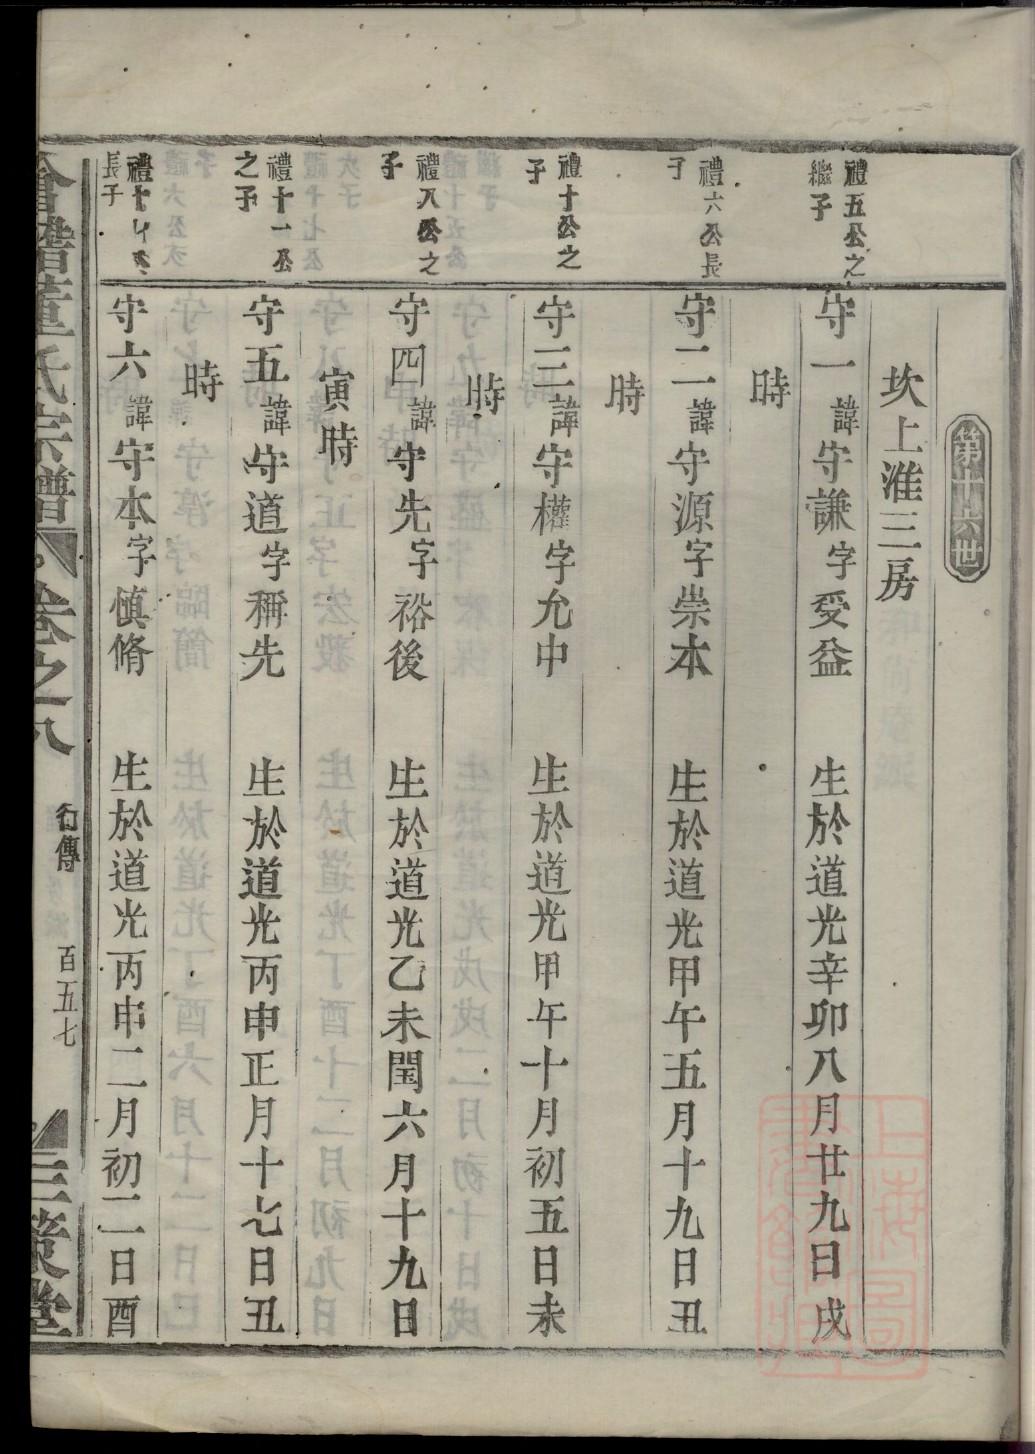 第廿六世
坎上淮三房
禮五公之
繼子
守一諱守謙字受益 生於道光辛卯八月廿九日戌
時
禮六公長
子
守二諱守源字崇本 生於道光甲午五月十九日丑
時
禮十公之
子
守三諱守權字允中 生於道光甲午十月初五日未
時
禮八公之
子
守四諱守先字裕後 生於道光乙未閏六月十九日
寅時
禮十一公
之子
守五諱守道字稱先 生於道光丙申正月十七日丑
時
禮十七公
長子
守六諱守本字慎脩 生於道光丙申二月初二日酉
會稽董氏宗譜 卷之八 行傳 百五七 三策堂
上海圖
書館藏